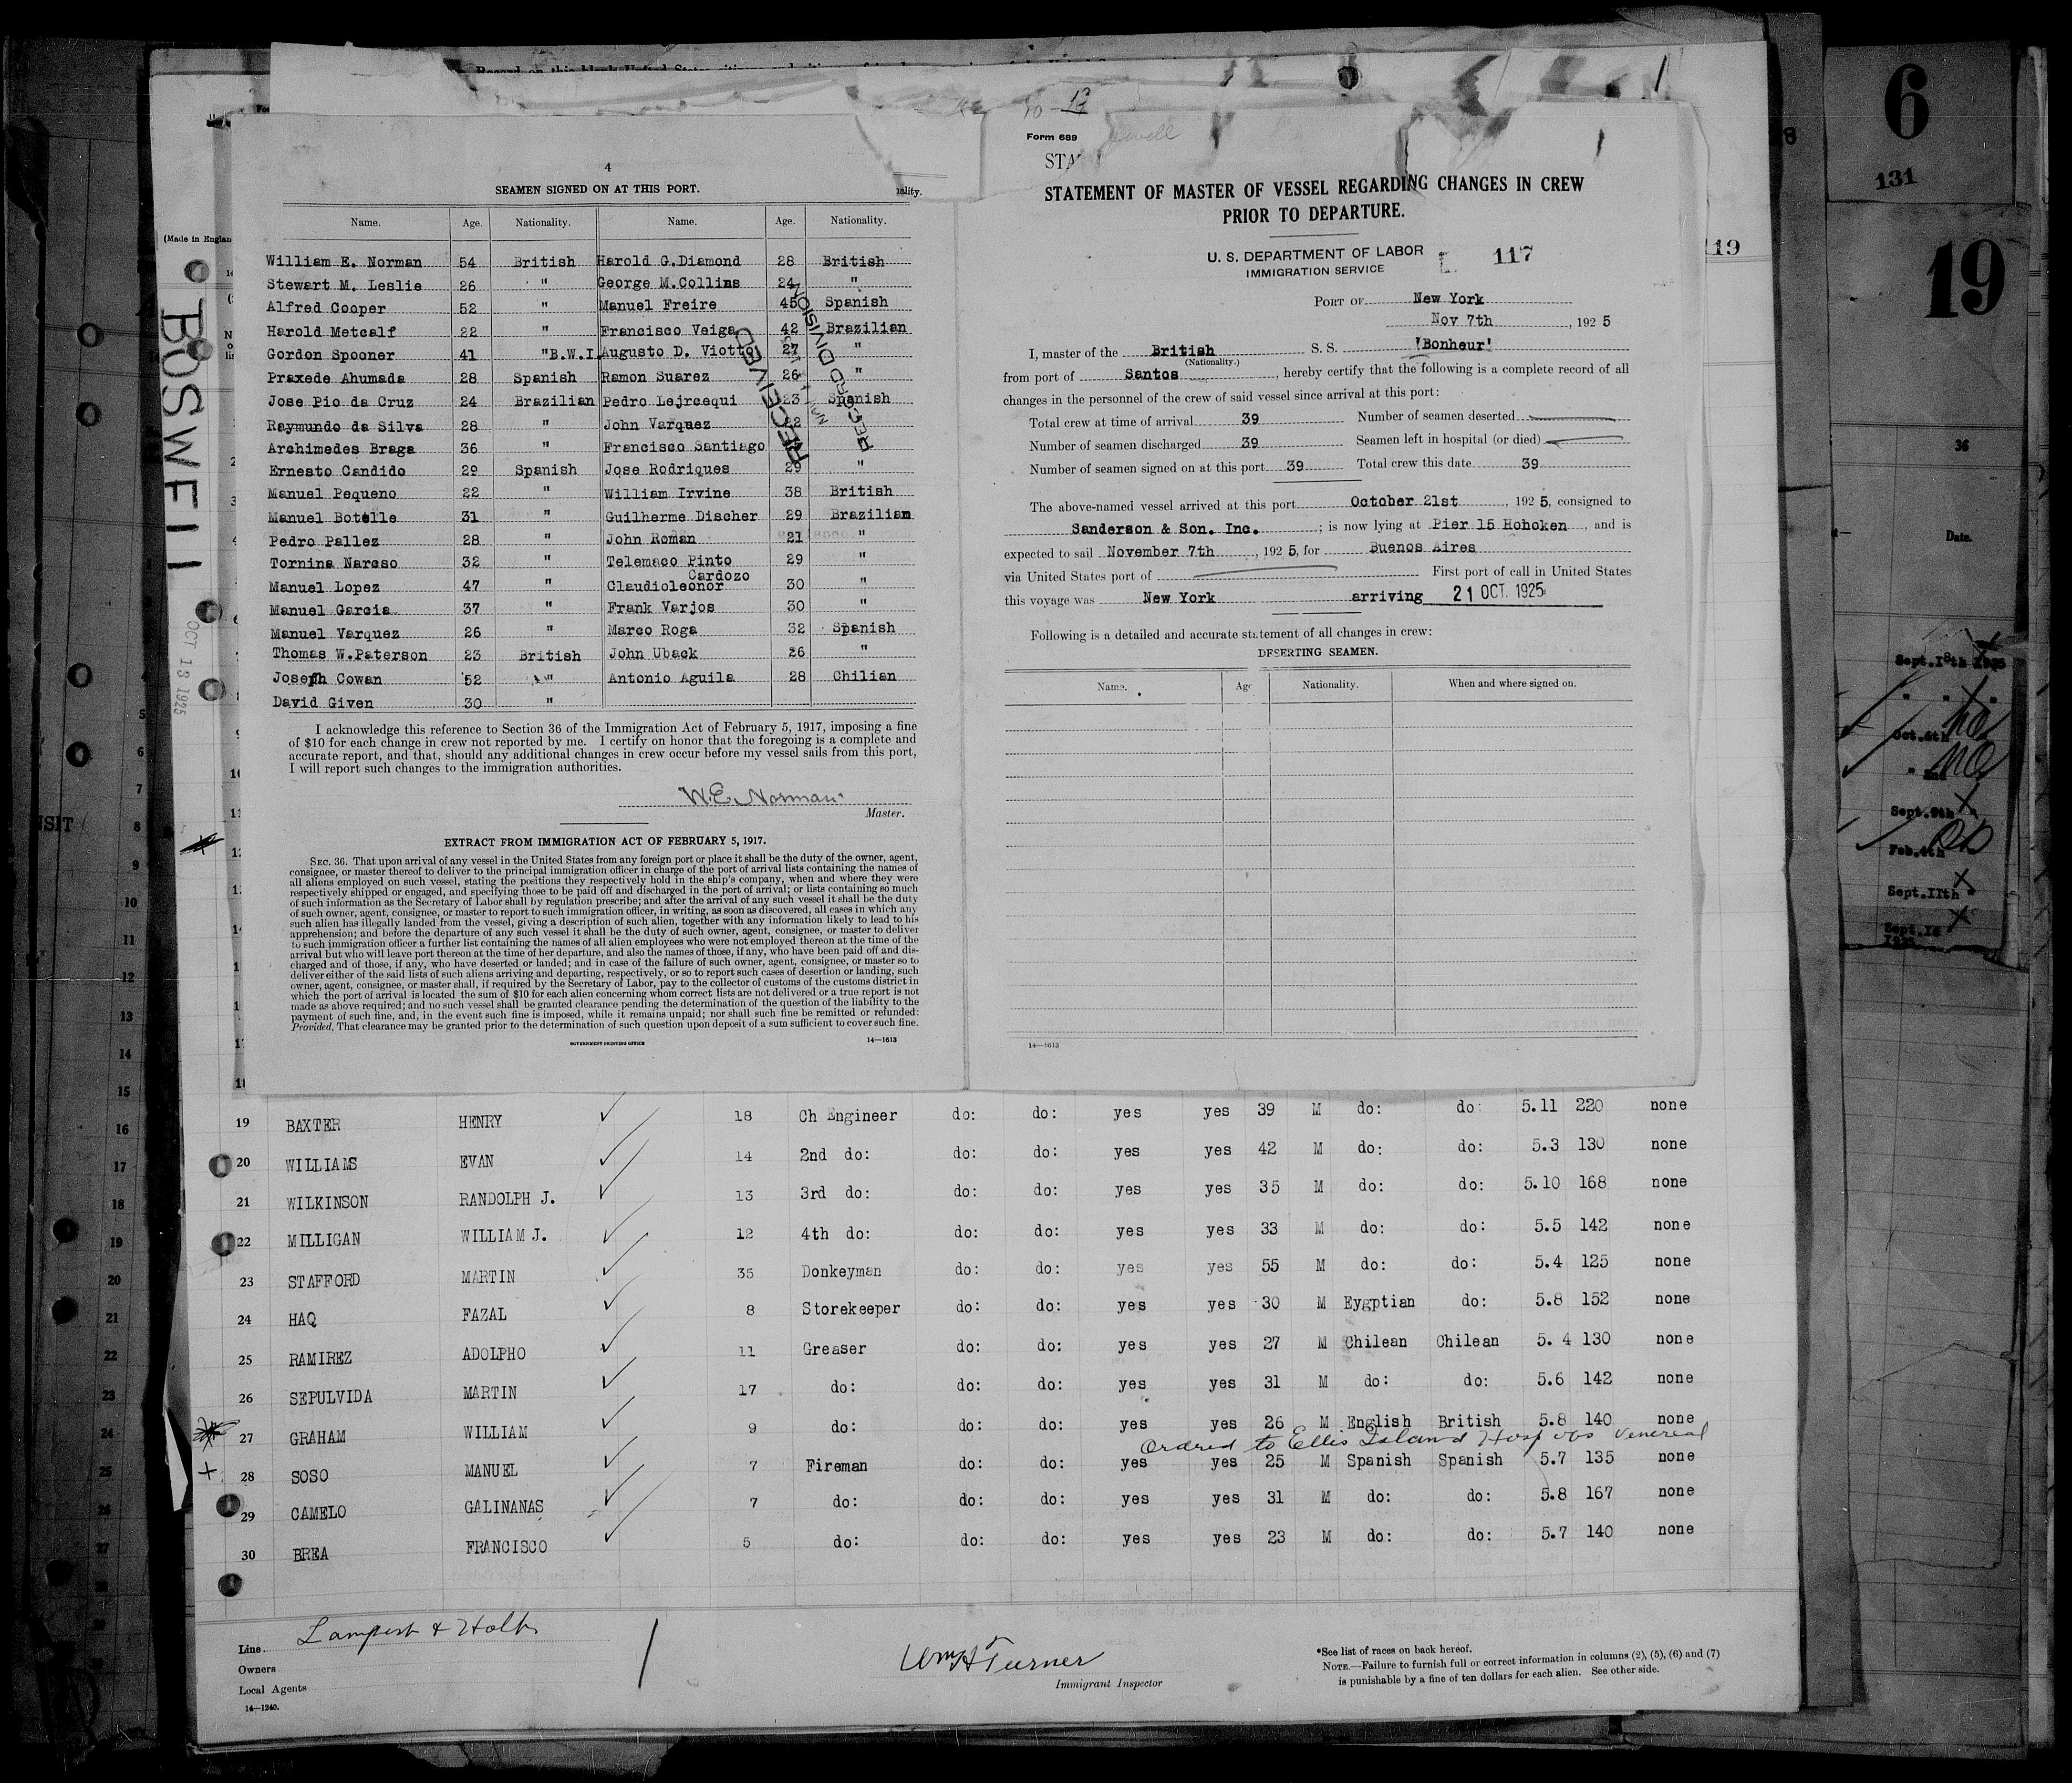 4
SEAMEN SIGNED ON AT THIS PORT.
Name. Age. Nationality. Name. Age. Nationality.
William E. Norman 54 British Harold G.Diamond 28 British
Stewart M. Leslie 26 " George M.Collins 24 "
Alfred Cooper 52 " Manuel Freire 45 Spanish
Harold Metcalf 22 " Francisco Veiga 42 Brazilian
Gordon Spooner 41 "B.W.I. Augusto D. Viotto 27 "
Praxede Ahumada 28 Spanish Ramon Suarez 26 "
Jose Pio da Cruz 24 Brazilian Pedro Lejrcequi 23 Spanish
Raymundo da Silva 28 " John Varquez
Archimedes Braga 36 " Francisco Santiago
Ernesto Candido 29 Spanish Jose Rodriques 29 "
Manuel Pequeno 22 " William Irvine 38 British
Manuel Botelle 31 " Guilherme Discher 29 Brazilian
Pedro Pallez 28 " John Roman 21 "
Tornina Narcso 32 " Telemaco Pinto 29 "
Manuel Lopez 47 " Claudioleonor Cardozo 30 "
Manuel Garcia 37 " Frank Varjos 30 "
Manuel Varquez 26 " Marco Roga 32 Spanish
Thomas W.Paterson 23 British John Uback 26 "
Joseph Cowan 52 " Antonio Aguila 28 Chilian
David Given 30 "
RECEIVED
RECORD DIVISION
I acknowledge this reference to Section 36 of the Immigration Act of February 5, 1917, imposing a fine
of $10 for each change in crew not reported by me. I certify on honor that the foregoing is a complete and
accurate report, and that, should any additional changes in crew occur before my vessel sails from this port,
I will report such changes to the immigration authorities.
W.E. Norman
Master.
EXTRACT FROM IMMIGRATION ACT OF FEBRUARY 5, 1917.
SEC. 36. That upon arrival of any vessel in the United States from any foreign port or place it shall be the duty of the owner, agent,
consignee, or master thereof to deliver to the principal immigration officer in charge of the port of arrival lists containing the names of
all aliens employed on such vessel, stating the positions they respectively hold in the ship's company, when and where they were
respectively shipped or engaged, and specifying those to be paid off and discharged in the port of arrival; or lists containing so much
of such information as the Secretary of Labor shall by regulation prescribe; and after the arrival of any such vessel it shall be the duty
of such owner, agent, consignee, or master to report to such immigration officer, in writing, as soon as discovered, all cases in which any
such alien has illegally landed from the vessel, giving a description of such alien, together with any information likely to lead to his
apprehension; and before the departure of any such vessel it shall be the duty of such owner, agent, consignee, or master to deliver
to such immigration officer a further list containing the names of all alien employees who were not employed thereon at the time of the
arrival but who will leave port thereon at the time of her departure, and also the names of those, if any, who have been paid off and dis-
charged and of those, if any, who have deserted or landed; and in case of the failure of such owner, agent, consignee, or master so to
deliver either of the said lists of such aliens arriving and departing, respectively, or so to report such cases of desertion or landing, such
owner, agent, consignee, or master shall, if required by the Secretary of Labor, pay to the collector of customs of the customs district in
which the port of arrival is located the sum of $10 for each alien concerning whom correct lists are not delivered or a true report is not
made as above required; and no such vessel shall be granted clearance pending the determination of the question of the liability to the
payment of such fine, and, in the event such fine is imposed, while it remains unpaid; nor shall such fine be remitted or refunded:
Provided, That clearance may be granted prior to the determination of such question upon deposit of a sum sufficient to cover such fine.
GOVERNMENT PRINTING OFFICE
14—1613
Form 689
STATEMENT OF MASTER OF VESSEL REGARDING CHANGES IN CREW
PRIOR TO DEPARTURE.
U. S. DEPARTMENT OF LABOR
IMMIGRATION SERVICE
117
PORT OF New York
Nov 7th, 1925
I, master of the British S. S. 'Bonheur'
(Nationality.)
from port of Santos, hereby certify that the following is a complete record of all
changes in the personnel of the crew of said vessel since arrival at this port:
Total crew at time of arrival 39 Number of seamen deserted
Number of seamen discharged 39 Seamen left in hospital (or died)
Number of seamen signed on at this port 39 Total crew this date 39
The above-named vessel arrived at this port October 21st, 1925, consigned to
Sanderson & Son. Inc. ; is now lying at Pier 15 Hohoken, and is
expected to sail November 7th, 1925, for Buenos Aires
via United States port of First port of call in United States
this voyage was New York arriving 21 OCT. 1925
Following is a detailed and accurate statement of all changes in crew:
DESERTING SEAMEN.
Name. Age Nationality. When and where signed on.
14—1613
(Made in England
BOSWELL
OCT 13 1925
19 BAXTER HENRY 18 Ch Engineer do: do: yes yes 39 M do: do: 5.11 220 none
20 WILLIAMS EVAN 14 2nd do: do: do: yes yes 42 M do: do: 5.3 130 none
21 WILKINSON RANDOLPH J. 13 3rd do: do: do: yes yes 35 M do: do: 5.10 168 none
22 MILLIGAN WILLIAM J. 12 4th do: do: do: yes yes 33 M do: do: 5.5 142 none
23 STAFFORD MARTIN 35 Donkeyman do: do: yes yes 55 M do: do: 5.4 125 none
24 HAQ FAZAL 8 Storekeeper do: do: yes yes 30 M Eygptian do: 5.8 152 none
25 RAMIREZ ADOLPHO 11 Greaser do: do: yes yes 27 M Chilean Chilean 5.4 130 none
26 SEPULVIDA MARTIN 17 do: do: do: yes yes 31 M do: do: 5.6 142 none
27 GRAHAM WILLIAM 9 do: do: do: yes yes 26 M English British 5.8 140 none
Ordered to Ellis Island Hosp obs Venereal
28 SOSO MANUEL 7 Fireman do: do: yes yes 25 M Spanish Spanish 5.7 135 none
29 CAMELO GALINANAS 7 do: do: do: yes yes 31 M do: do: 5.8 167 none
30 BREA FRANCISCO 5 do: do: do: yes yes 23 M do: do: 5.7 140 none
Line Lamport & Holt
Owners
Local Agents
14—1240.
Wm H Turner
Immigrant Inspector
*See list of races on back hereof.
NOTE.—Failure to furnish full or correct information in columns (2), (5), (6) and (7)
is punishable by a fine of ten dollars for each alien. See other side.
6
131
19
119
36
Date.
Sept.18th
Oct.6th no
no
Sept.9th
Feb.4th
Sept.11th